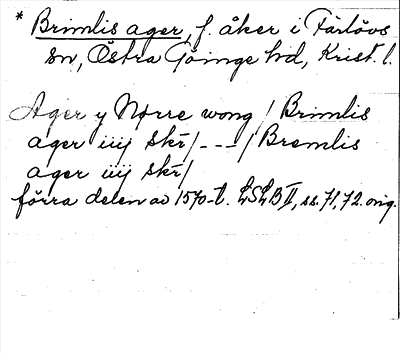 * Brimlis ager, f. åker i Färlövs
sn, Östra Göinge hd, Krist. l.
Ager y Nørre wong / Brimlis
ager iiij skr / - - - / Bremlis
ager iiij skr /
förra delen av 1570-t. LSLB II, ss. 71, 72. orig.